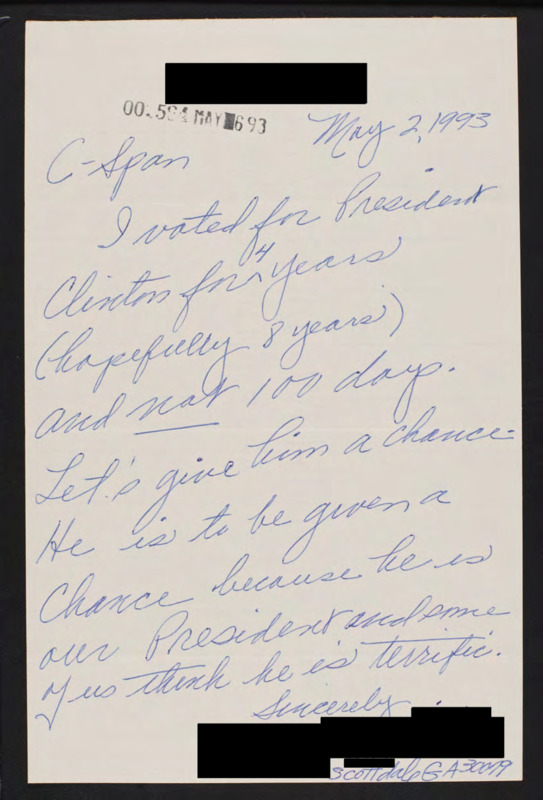 00.594 MAY 693
May 2, 1993
C-Span
I voted for President
Clinton for 4 years
(hopefully 8 years)
and not 100 days.
Let's give him a chance-
He is to be given a
Chance because he is
our President and some
of us think he is terrific.
Sincerely
Scottdale GA 30079